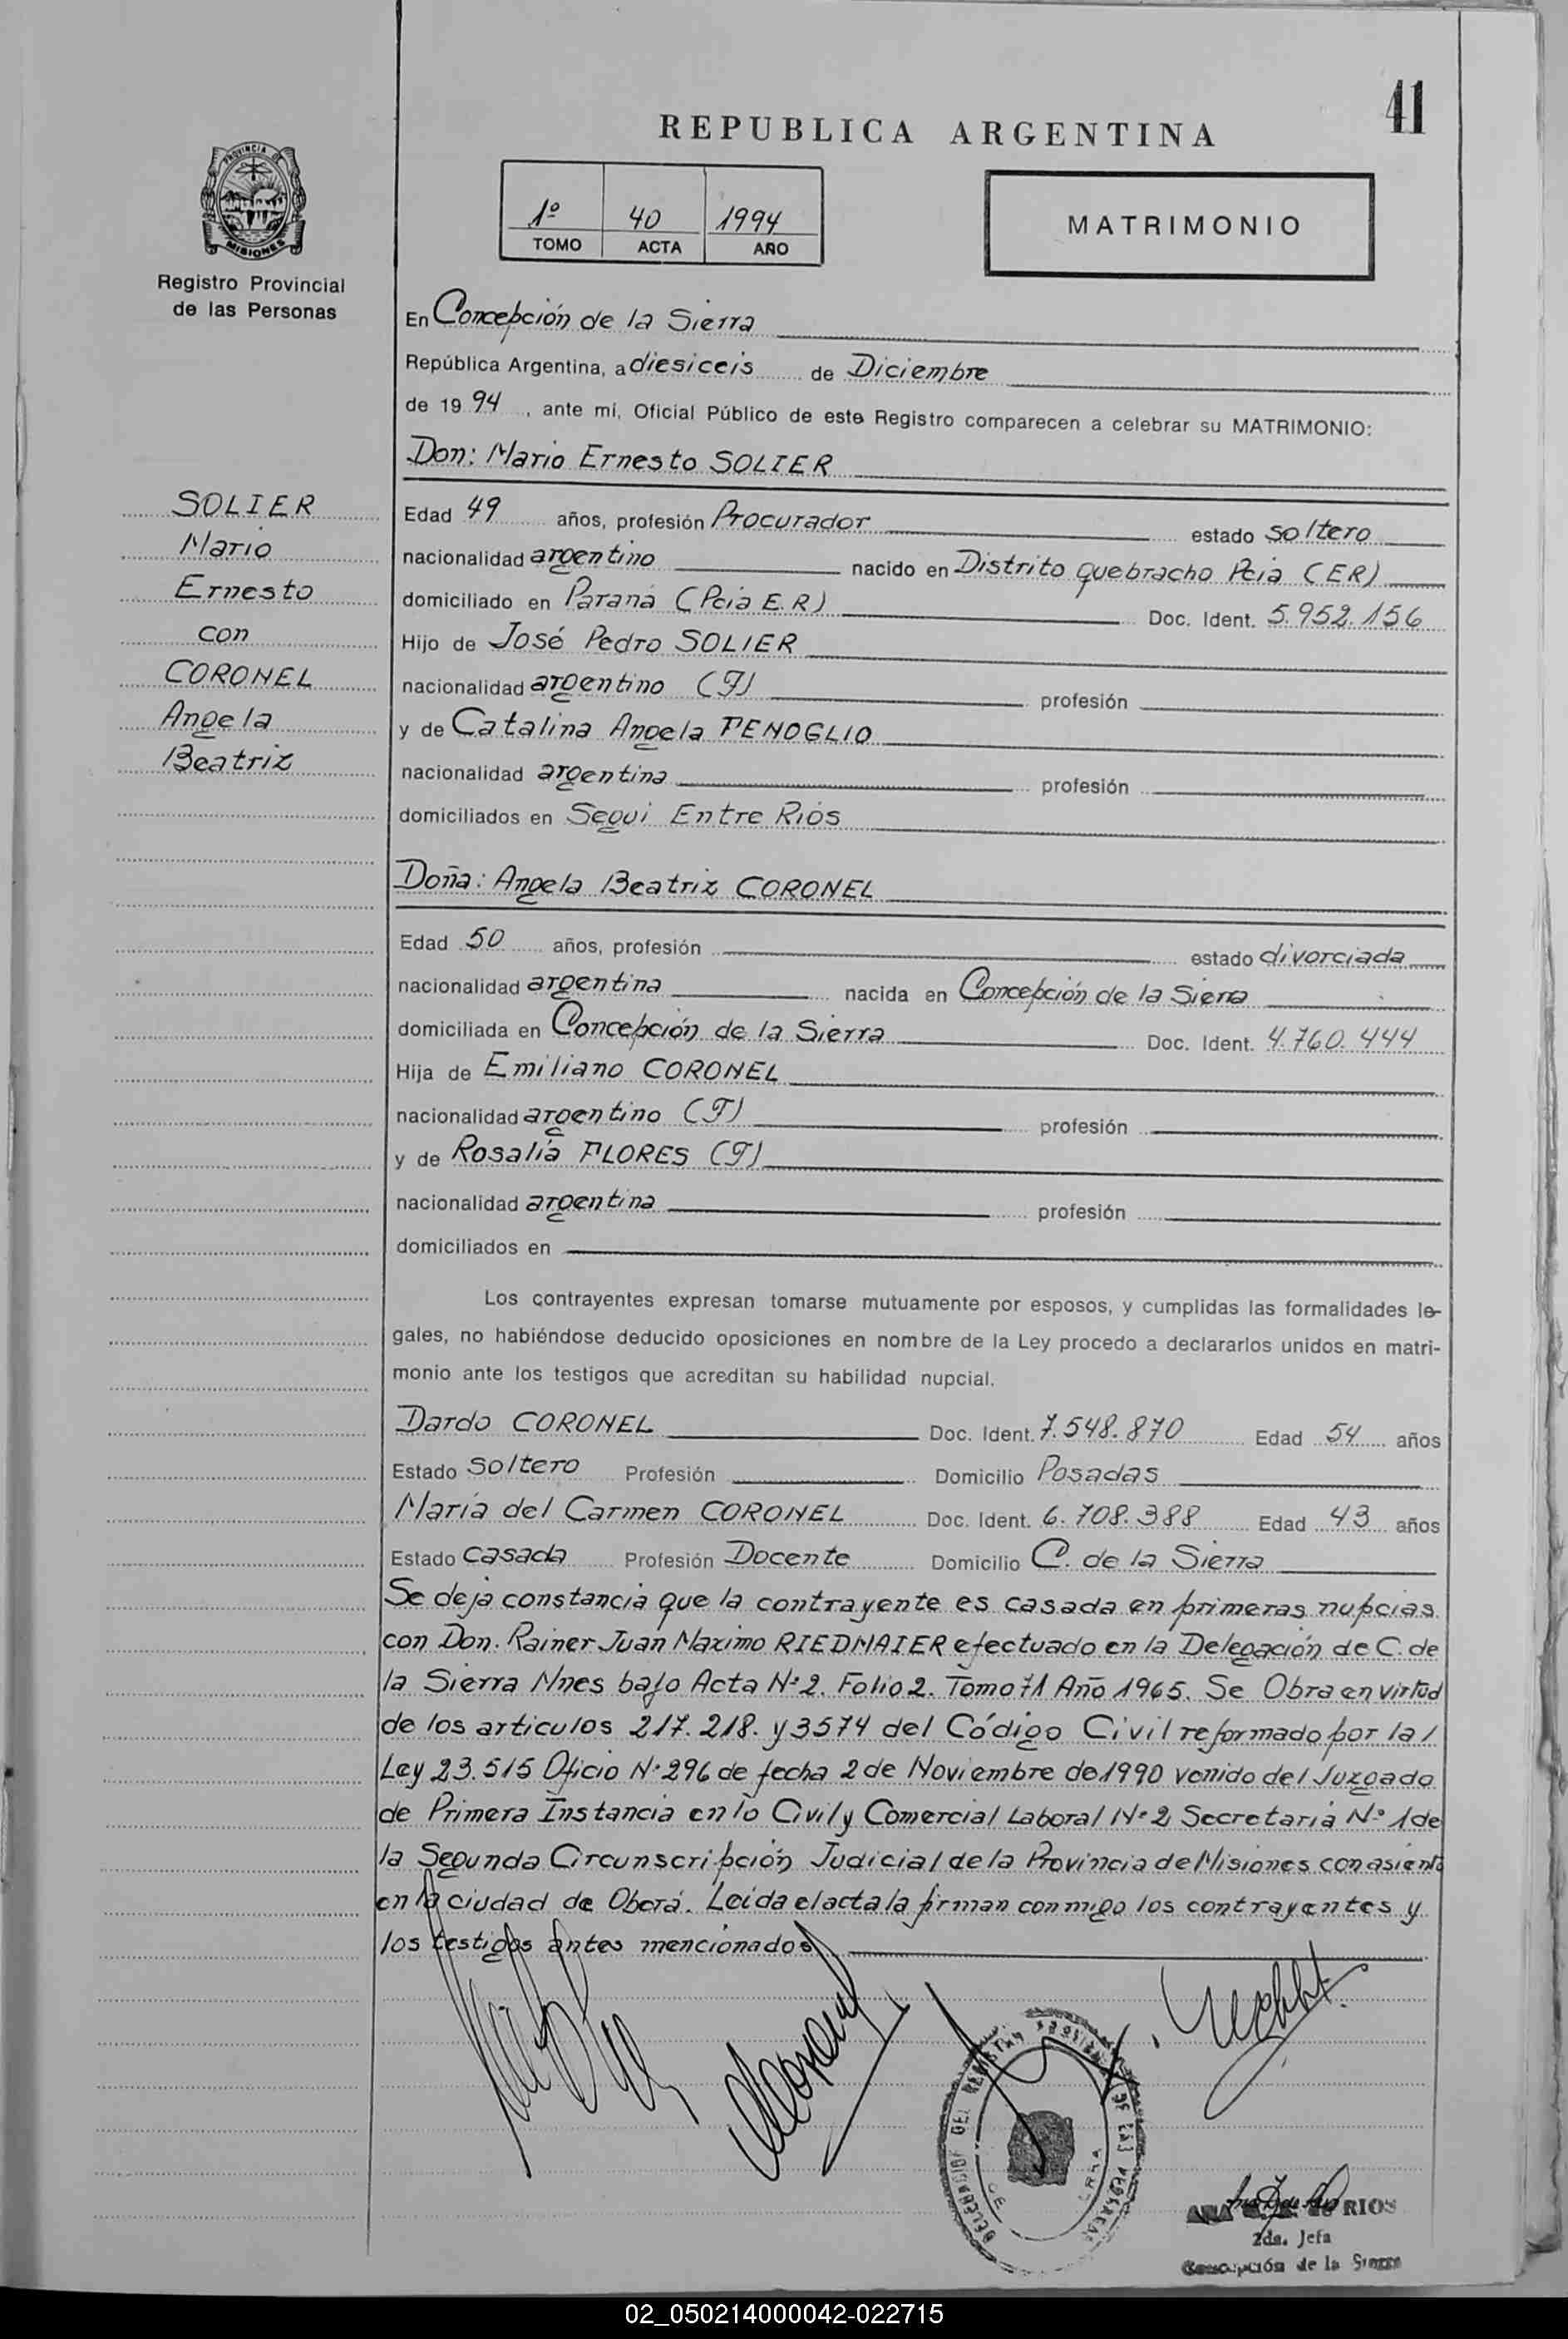 41
REPUBLICA ARGENTINA
PROVINCIA DE
MISIONES
Registro Provincial
de las Personas
1º 40 1994
TOMO ACTA AÑO
MATRIMONIO
En Concepción de la Sierra
República Argentina, a diesiceis de Diciembre
de 1994, ante mí, Oficial Público de este Registro comparecen a celebrar su MATRIMONIO:
Don: Mario Ernesto SOLIER
SOLIER
Mario
Ernesto
con
CORONEL
Angela
Beatriz
Edad 49 años, profesión Procurador estado soltero
nacionalidad argentino nacido en Distrito quebracho Pcia (ER)
domiciliado en Paraná (Pcia E.R) Doc. Ident. 5.952.156
Hijo de José Pedro SOLIER
nacionalidad argentino (F) profesión
y de Catalina Angela FENOGLIO
nacionalidad argentina profesión
domiciliados en Segui Entre Rios
Doña: Angela Beatriz CORONEL
Edad 50 años, profesión estado divorciada
nacionalidad argentina nacida en Concepción de la Sierra
domiciliada en Concepción de la Sierra Doc. Ident. 4.760.444
Hija de Emiliano CORONEL
nacionalidad argentino (F) profesión
y de Rosalía FLORES (F)
nacionalidad argentina profesión
domiciliados en
Los contrayentes expresan tomarse mutuamente por esposos, y cumplidas las formalidades le-
gales, no habiéndose deducido oposiciones en nombre de la Ley procedo a declararlos unidos en matri-
monio ante los testigos que acreditan su habilidad nupcial.
Dardo CORONEL Doc. Ident. 7.548.870 Edad 54 años
Estado soltero Profesión Domicilio Posadas
María del Carmen CORONEL Doc. Ident. 6.708.388 Edad 43 años
Estado casada Profesión Docente Domicilio C. de la Sierra
Se deja constancia que la contrayente es casada en primeras nupcias
con Don. Rainer Juan Maximo RIEDMAIER efectuado en la Delegación de C. de
la Sierra Mnes bajo Acta Nº 2. Folio 2. Tomo 71 Año 1965. Se Obra en virtud
de los articulos 217. 218. y 3574 del Código Civil reformado por la /
Ley 23.515 Oficio Nº 296 de fecha 2 de Noviembre de 1990 venido del Juzgado
de Primera Instancia en lo Civil y Comercial Laboral Nº 2, Secretaria Nº 1 de
la Segunda Circunscripción Judicial de la Provincia de Misiones con asiento
en la ciudad de Oberá. Leída el acta la firman conmigo los contrayentes y
los testigos antes mencionados
DEL REGISTRO DE LAS PERSONAS
ANA RIOS
2da. Jefa
Concepción de la Sierra
02_050214000042-022715